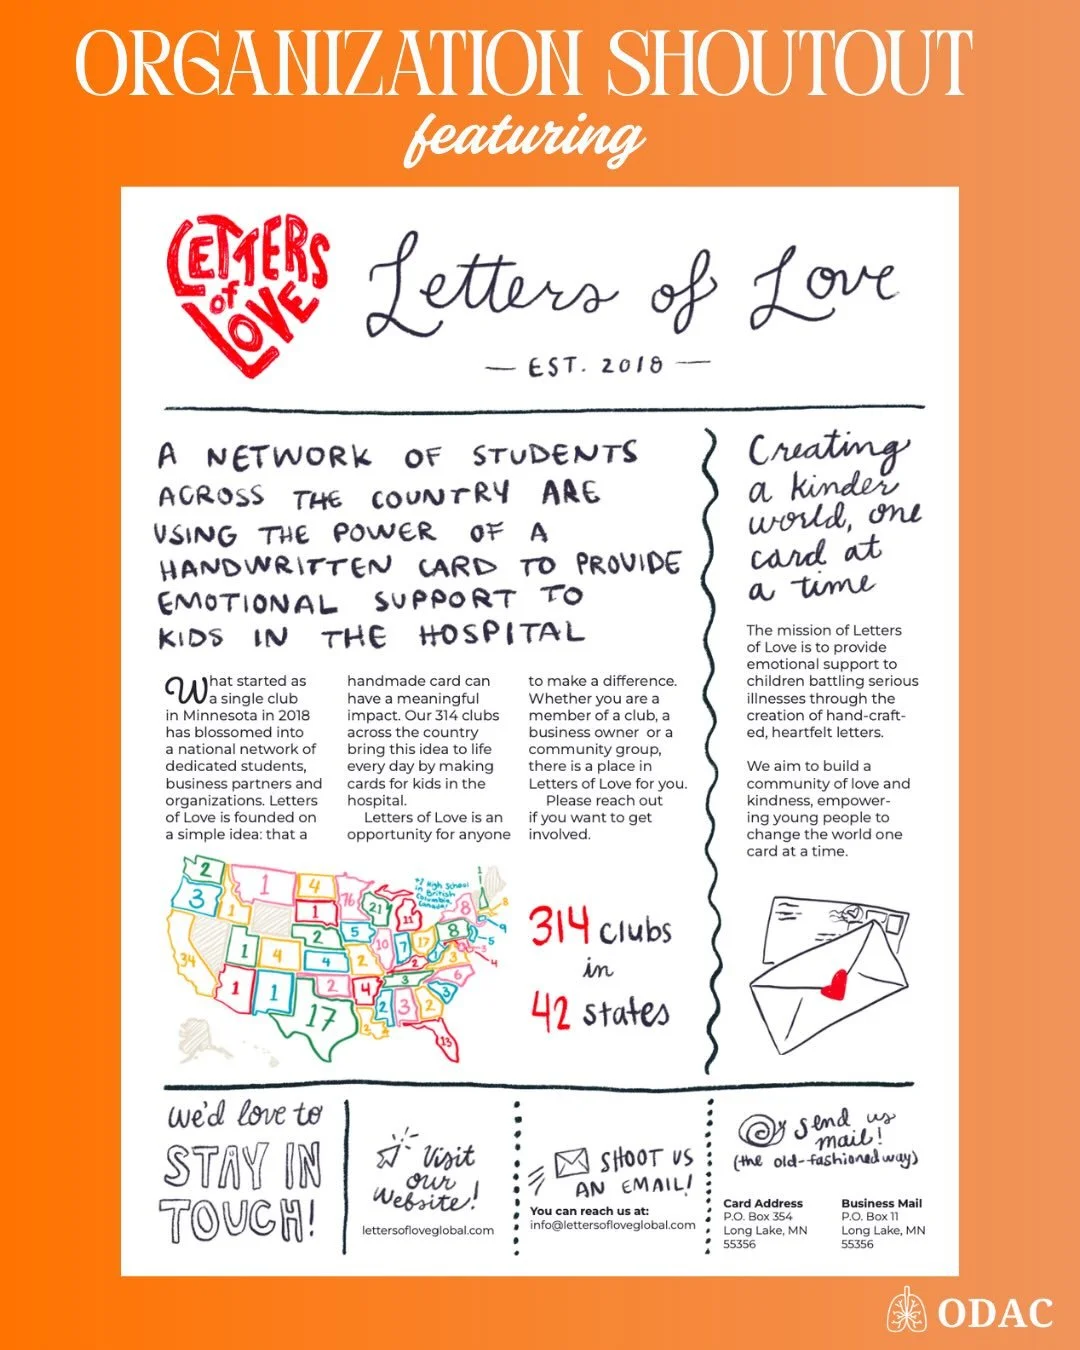 ORGANIZATION SHOUTOUT
featuring
LETTERS
of
LOVE
Letters of Love
— EST. 2018 —
A NETWORK OF STUDENTS
ACROSS THE COUNTRY ARE
USING THE POWER OF A
HANDWRITTEN CARD TO PROVIDE
EMOTIONAL SUPPORT TO
KIDS IN THE HOSPITAL
What started as
a single club
in Minnesota in 2018
has blossomed into
a national network of
dedicated students,
business partners and
organizations. Letters
of Love is founded on
a simple idea: that a
handmade card can
have a meaningful
impact. Our 314 clubs
across the country
bring this idea to life
every day by making
cards for kids in the
hospital.
Letters of Love is an
opportunity for anyone
to make a difference.
Whether you are a
member of a club, a
business owner or a
community group,
there is a place in
Letters of Love for you.
Please reach out
if you want to get
involved.
Creating
a kinder
world, one
card at
a time
The mission of Letters
of Love is to provide
emotional support to
children battling serious
illnesses through the
creation of hand-craft-
ed, heartfelt letters.
We aim to build a
community of love and
kindness, empower-
ing young people to
change the world one
card at a time.
2
3
1
4
76
21
11
High School
in British
Columbia,
Canada!
1
8
8
9
5
3
4
34
1
1
2
5
10
7
17
8
1
4
4
2
2
1
3
6
1
1
2
4
3
3
17
2
3
2
2
2
13
314 clubs
in
42 states
We'd love to
STAY IN
TOUCH!
Visit
our
Website!
lettersofloveglobal.com
SHOOT US
AN EMAIL!
You can reach us at:
info@lettersofloveglobal.com
Send us
mail!
(the old-fashioned way)
Card Address
P.O. Box 354
Long Lake, MN
55356
Business Mail
P.O. Box 11
Long Lake, MN
55356
ODAC